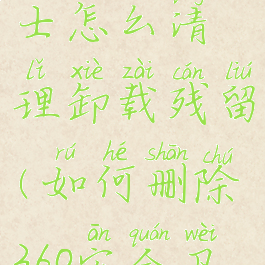 士怎么清
lǐ xiè zài cán liú
理卸载残留
rú hé shān chú
(如何删除
ān quán wèi
360安全卫